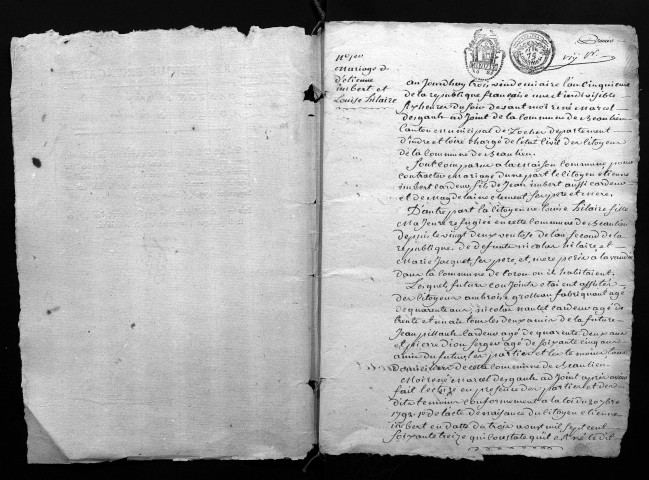 n.° 1er
Mariage d
d'etienne
imbert et
Louise hilaire
au Jourdhuy trois vindemiaire l'an cinquieme
de la republique française une et indivisible
six heures du soir devant moi rené marcel
desgault adJoint de la commune de Beaulieu
Canton municipal de Loches departement
d'indre et loire chargé de l'etat civil des citoyens
de la commune de Beaulieu
Sont comparus a la Maison commune pour
contracter Mariage d'une part le citoyen etienne
imbert cardeur, fils de Jean imbert aussi cardeur
et de Magdelaine clement ses pere et mere.
D'autre part la citoyenne Louise hilaire fille
Majeure refugiée en cette commune de Beaulieu
depuis le vingt deux ventose de l'an second de la
republique, de defunts nicolas hilaire et
Marie Jacquet, ses pere, et mere peris a la vendée
dans la commune de coron ou ils habitaient.
Lesquels futurs conJoints etaient assistés
des citoyens ambroix grolleau fabriquant agé
de quarente ans, nicolas nautet cardeur agé de
trente et un ans tous les deux amis de la future
Jean pillault cardeur agé de quarente deux ans
et pierre dion serger agé de soixante cinq ans
amis du futur, les parties et les temoins tous
domiciliers de cette commune de Beaulieu.
Moi rené Marcel desgault adJoint après avoir
fait lecture en presence des parties et des
dits temoins conformement a la loi du 20 7bre
1792 1° de l'acte de naissance du citoyen etienne
imbert en datte du trois aous mil sept cent
soixante treize qui constate qu'il est né le dit